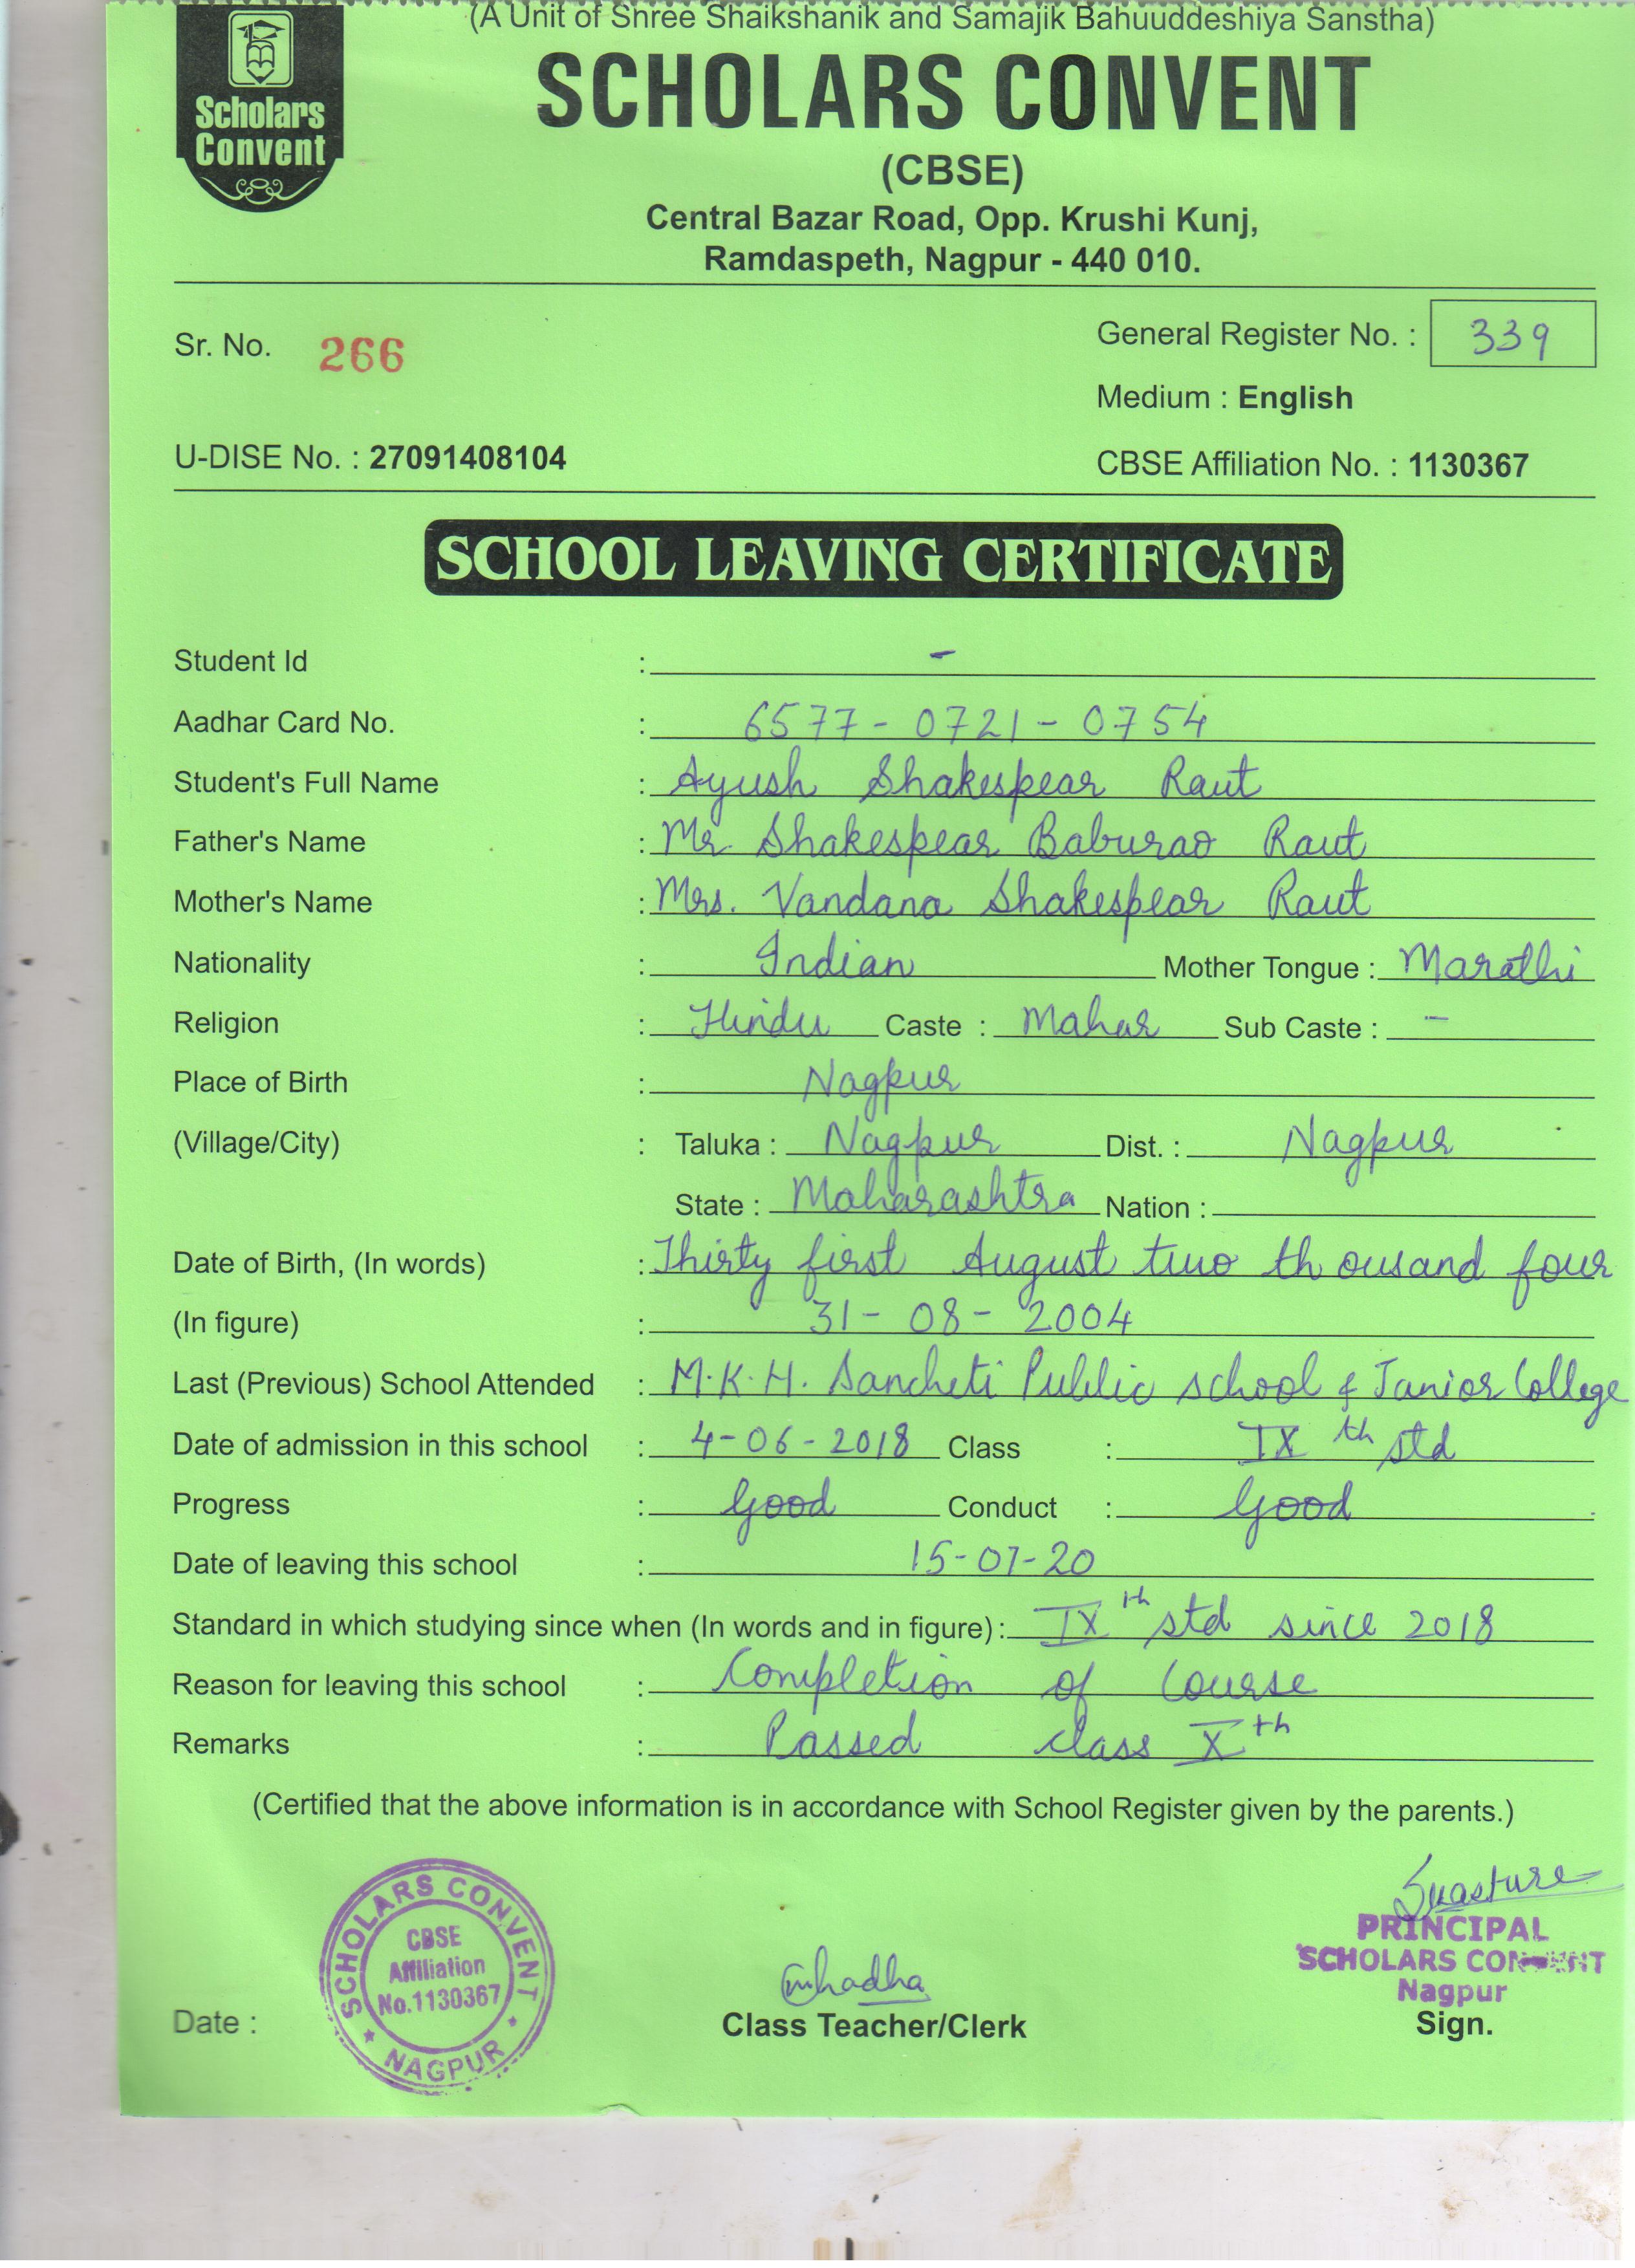 (A Unit of Shree Shaikshanik and Samajik Bahuuddeshiya Sanstha)
Scholars
Convent
SCHOLARS CONVENT
(CBSE)
Central Bazar Road, Opp. Krushi Kunj,
Ramdaspeth, Nagpur - 440 010.
Sr. No. 266
General Register No. : 339
Medium : English
U-DISE No. : 27091408104
CBSE Affiliation No. : 1130367
SCHOOL LEAVING CERTIFICATE
Student Id : -
Aadhar Card No. : 6577 - 0721 - 0754
Student's Full Name : Ayush Shakespear Raut
Father's Name : Mr. Shakespear Baburao Raut
Mother's Name : Mrs. Vandana Shakespear Raut
Nationality : Indian Mother Tongue : Marathi
Religion : Hindu Caste : Mahar Sub Caste : -
Place of Birth : Nagpur
(Village/City) : Taluka : Nagpur Dist. : Nagpur
State : Maharashtra Nation :
Date of Birth, (In words) : Thirty first August two thousand four
(In figure) : 31 - 08 - 2004
Last (Previous) School Attended : M.K.H. Sancheti Public school & Junior College
Date of admission in this school : 4-06-2018 Class : IX th std
Progress : Good Conduct : Good
Date of leaving this school : 15-07-20
Standard in which studying since when (In words and in figure) : IX th std since 2018
Reason for leaving this school : Completion of Course
Remarks : Passed class X th
(Certified that the above information is in accordance with School Register given by the parents.)
SCHOLARS CONVENT
CBSE
Affiliation
No.1130367
NAGPUR
PRINCIPAL
SCHOLARS CONVENT
Nagpur
Date : Class Teacher/Clerk Sign.